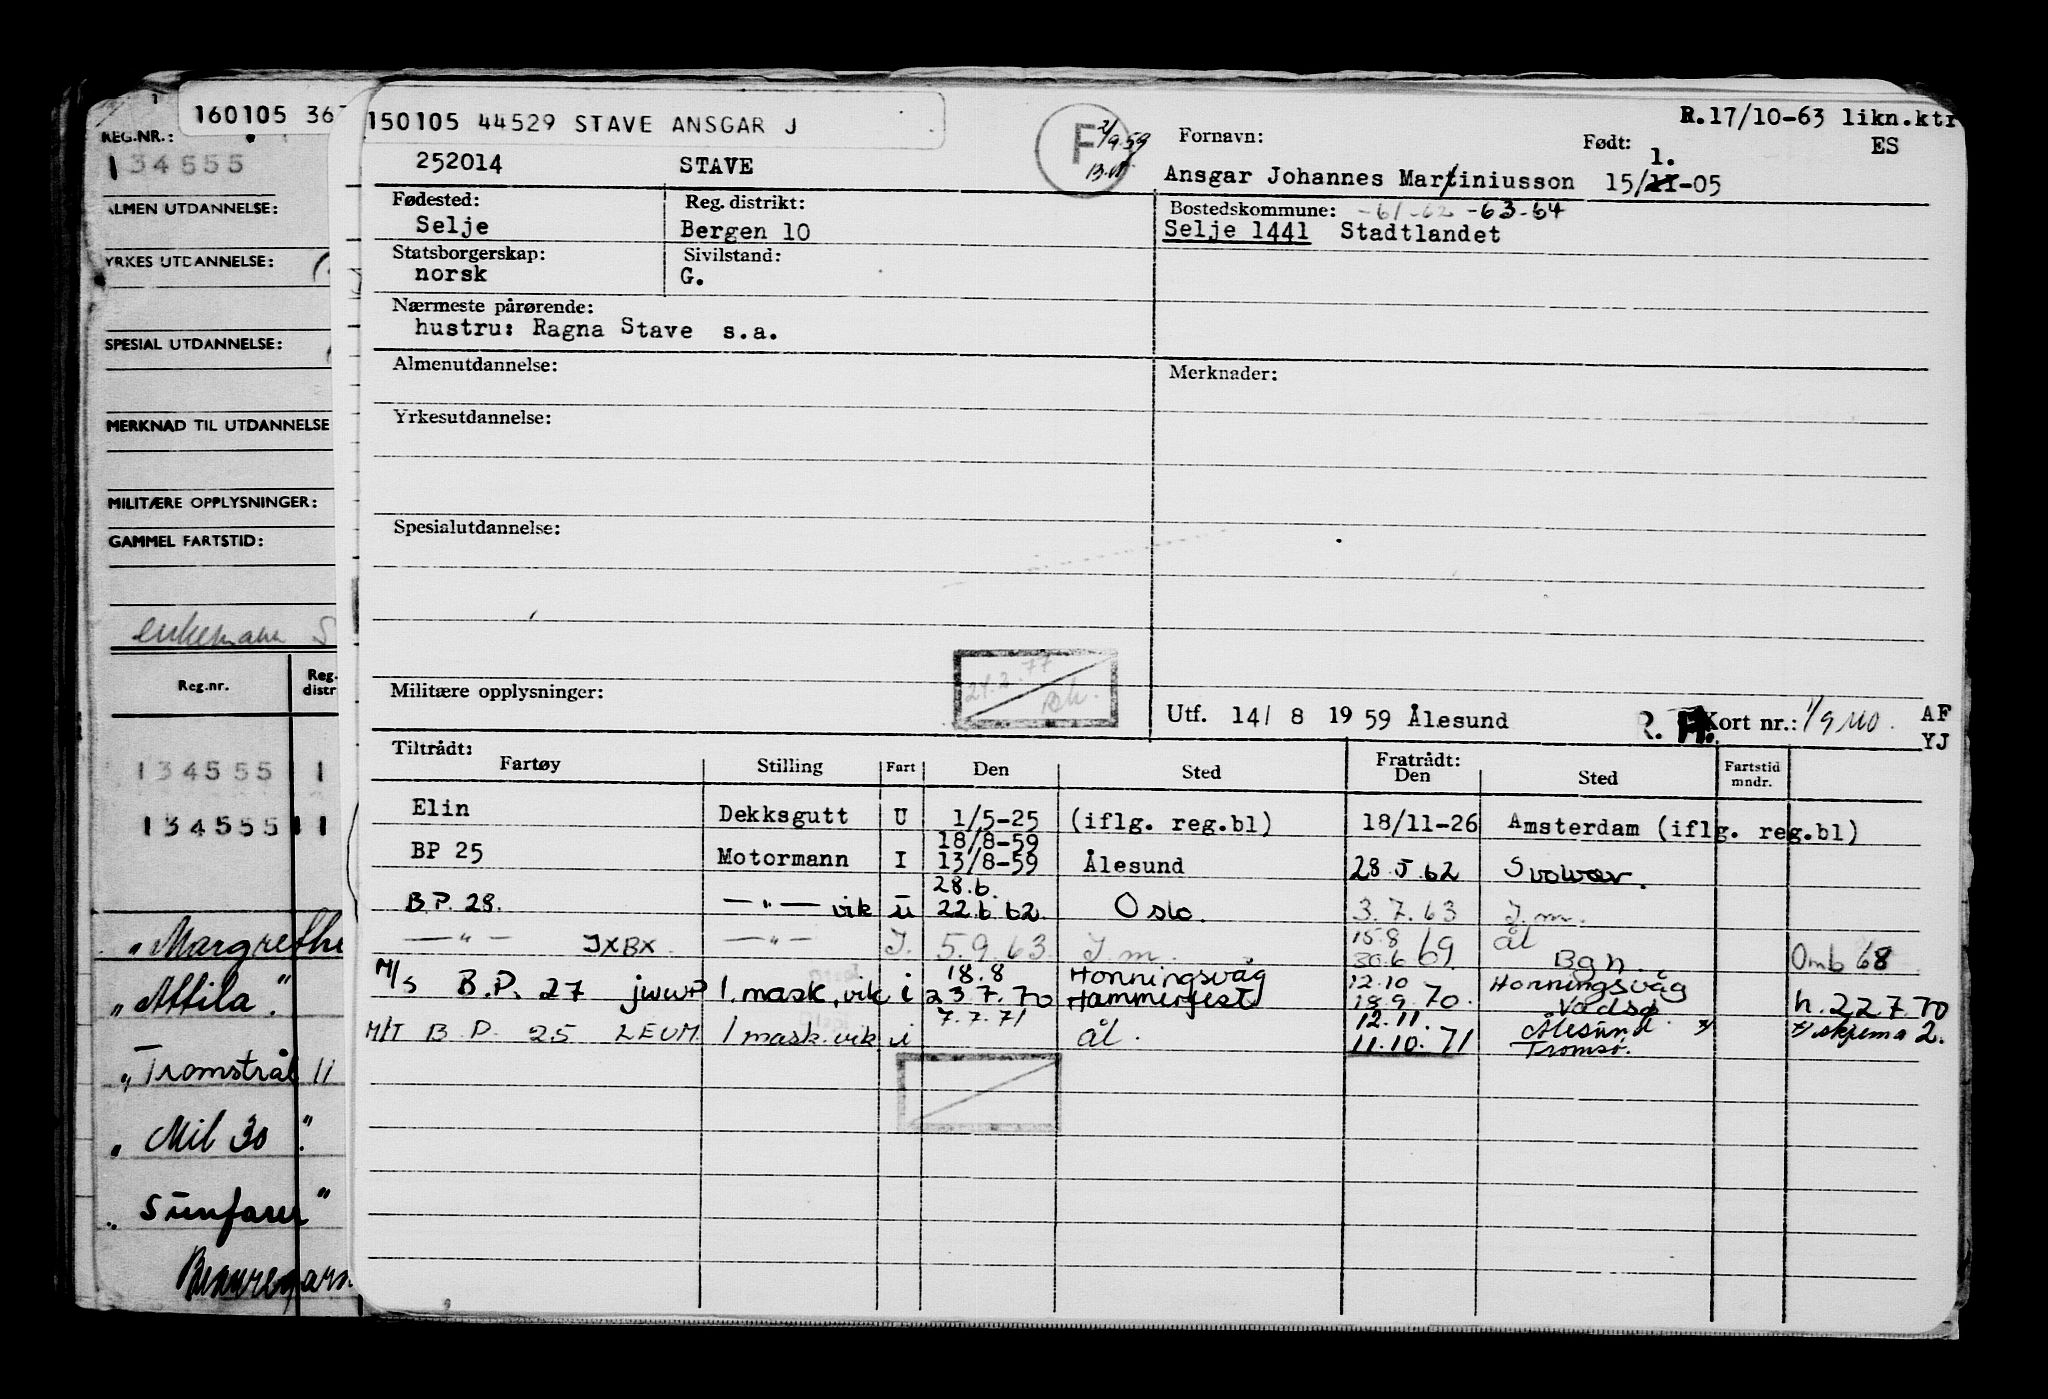 160105 36
REG.NR.:
134555
ALMEN UTDANNELSE:
YRKES UTDANNELSE:
SPESIAL UTDANNELSE:
MERKNAD TIL UTDANNELSE
MILITÆRE OPPLYSNINGER:
GAMMEL FARTSTID:
enkemann S
Reg.nr. Reg. distr
134555 1
134555 11
"Margrethe
"Attila"
"Tromstrål 11
"Mil 30"
"Sunfarer"
150105 44529 STAVE ANSGAR J
F 2/9.59
R.17/10-63 likn.ktr
ES
252014 STAVE
Fornavn: Født:
Ansgar Johannes Martiniusson 15/11-05
1.
Fødested: Reg. distrikt: Bostedskommune: -61-62-63-64
Selje Bergen 10 Selje 1441 Stadtlandet
Statsborgerskap: Sivilstand:
norsk G.
Nærmeste pårørende:
hustru: Ragna Stave s.a.
Almenutdannelse: Merknader:
Yrkesutdannelse:
Spesialutdannelse:
21.2.77
Militære opplysninger:
Utf. 14/ 8 1959 Ålesund R. Kort nr.: 1/9 AF
YJ
Tiltrådt: Fratrådt:
Fartøy Stilling Fart Den Sted Den Sted Fartstid mndr.
Elin Dekksgutt U 1/5-25 (iflg. reg.bl) 18/11-26 Amsterdam (iflg. reg.bl)
18/8-59
BP 25 Motormann I 13/8-59 Ålesund 28.5.62 Svolvær.
28.6.
B.P. 28. —"— vik u 22.6.62. Oslo. 3.7.63 I.m.
15.8 ål
—"— JXBX. —"— I. 5.9.63. I.m. 30.6 69 Bgn. Omb 68
18.8 Honningsvåg 12.10 Honningsvåg
M/S B.P. 27 jwwP 1. mask. vik i 23.7.70 Hammerfest 18.9.70. Vadsø h. 22 7.70
7.7.71 12.11. Ålesund.
M/T B.P. 25 LEUM 1 mask. vik i ål. 11.10.71 Tromsø. x/ x/ skjema 2.